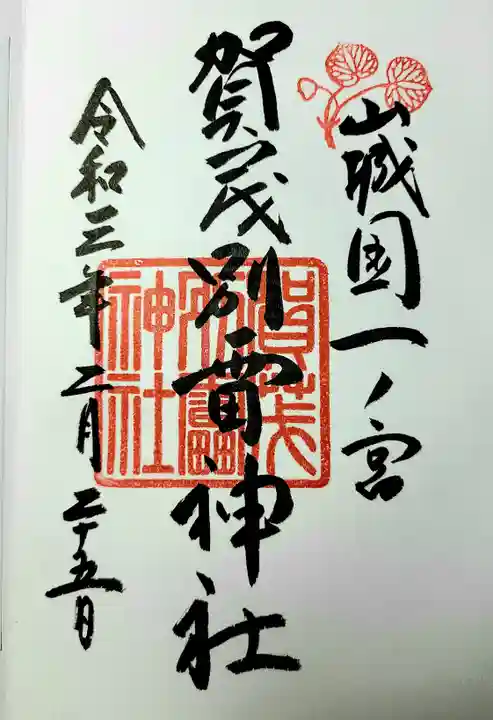 山城国一ノ宮
賀茂別雷神社
賀茂
別雷
神社
令和三年二月二十五日